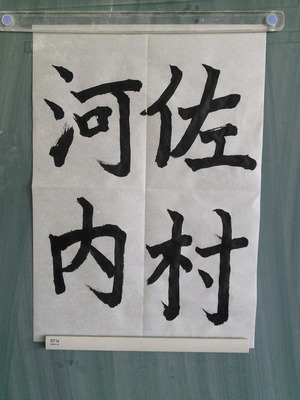 佐村
河内